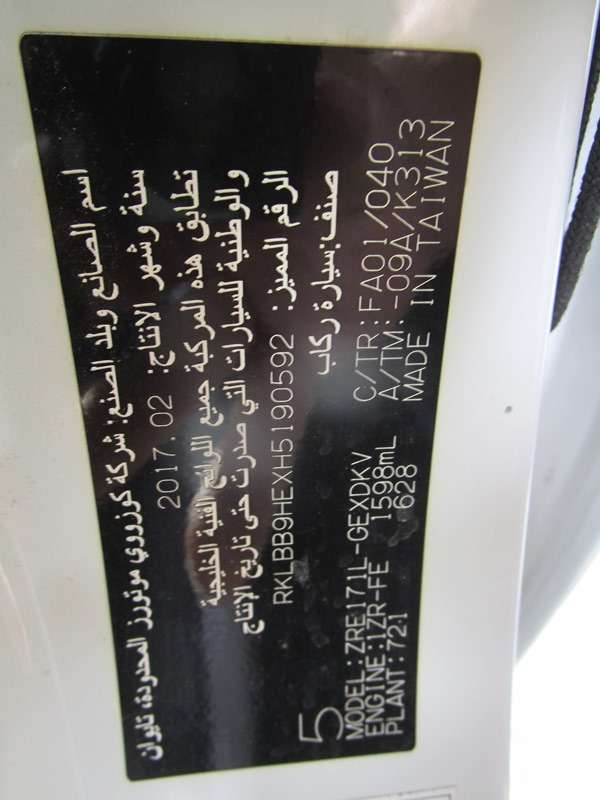 اسم الصانع وبلد الصنع: شركة كوزوروي موتورز المحدودة، تايوان
سنة وشهر الانتاج: 2017.02
تطابق هذه المركبة جميع اللوائح الفنية الخليجية
والوطنية للسيارات التي صدرت حتى تاريخ الإنتاج
الرقم المميز: RKLBB9HEXH5190592
صنف:سيارة ركاب
5
MODEL:ZRE171L-GEXDKV C/TR:FA01/040
ENGINE:1ZR-FE 1598mL A/TM:-09A/K313
PLANT:721 628 MADE IN TAIWAN